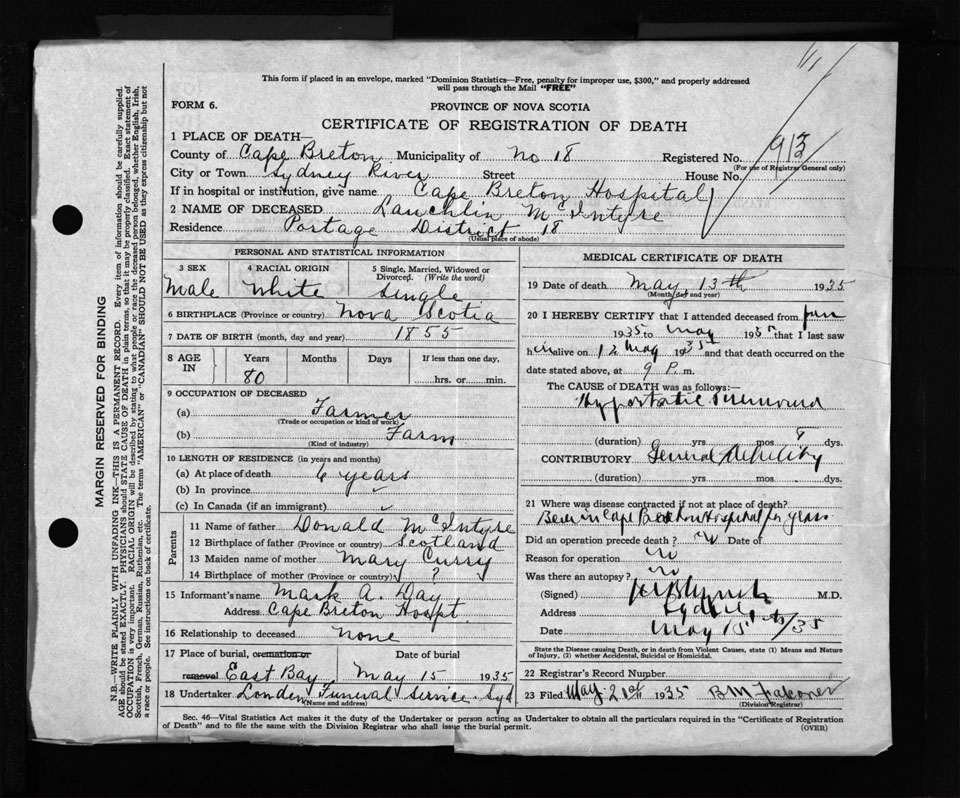 This form if placed in an envelope, marked "Dominion Statistics—Free, penalty for improper use, $300," and properly addressed
will pass through the Mail "FREE"
FORM 6.
PROVINCE OF NOVA SCOTIA
CERTIFICATE OF REGISTRATION OF DEATH
1 PLACE OF DEATH—
County of Cape Breton Municipality of No 18 Registered No. 913
(For use of Registrar General only)
City or Town Sydney River Street House No.
If in hospital or institution, give name Cape Breton Hospital
2 NAME OF DECEASED Lauchlin McIntyre
Residence Portage District 18
(Usual place of abode)
PERSONAL AND STATISTICAL INFORMATION
3 SEX 4 RACIAL ORIGIN 5 Single, Married, Widowed or
Divorced. (Write the word)
Male White Single
6 BIRTHPLACE (Province or country) Nova Scotia
7 DATE OF BIRTH (month, day and year) 1855
8 AGE IN Years Months Days If less than one day,
80 hrs. or min.
9 OCCUPATION OF DECEASED
(a) Farmer
(Trade or occupation or kind of work)
(b) Farm
(Kind of industry)
10 LENGTH OF RESIDENCE (in years and months)
(a) At place of death 6 years
(b) In province
(c) In Canada (if an immigrant)
Parents
11 Name of father Donald McIntyre
12 Birthplace of father (Province or country) Scotland
13 Maiden name of mother Mary Curry
14 Birthplace of mother (Province or country) ?
15 Informant's name Mark A. Day
Address Cape Breton Hospt.
16 Relationship to deceased None
17 Place of burial, cremation or Date of burial
removal East Bay May 15 1935
18 Undertaker London Funeral Service Syd
(Name and address)
MEDICAL CERTIFICATE OF DEATH
19 Date of death May 13th 1935
(Month, day and year)
20 I HEREBY CERTIFY that I attended deceased from Jan
1935 to May 1935 that I last saw
him alive on 12 May 1935 and that death occurred on
date stated above, at 9 P. m.
The CAUSE of DEATH was as follows:—
Hypostatic Pneumonia
(duration) yrs mos 8 dys.
CONTRIBUTORY General debility
(duration) yrs. mos. dys.
21 Where was disease contracted if not at place of death?
Been in Cape Breton Hospital for years
Did an operation precede death? no Date of
Reason for operation no
Was there an autopsy? no
(Signed) M.D.
Address Sydney
Date May 15th/35
State the Disease causing Death, or in death from Violent Causes, state (1) Means and Nature
of Injury, (2) whether Accidental, Suicidal or Homicidal.
22 Registrar's Record Number
23 Filed May 21st 1935 B M Falconer
(Division Registrar)
Sec. 46—Vital Statistics Act makes it the duty of the Undertaker or person acting as Undertaker to obtain all the particulars required in the "Certificate of Registration
of Death" and to file the same with the Division Registrar who shall issue the burial permit. (OVER)
MARGIN RESERVED FOR BINDING
N.B.—WRITE PLAINLY WITH UNFADING INK—THIS IS A PERMANENT RECORD. Every item of information should be carefully supplied.
AGE should be stated EXACTLY. PHYSICIANS should STATE CAUSE OF DEATH in plain terms, so that it may be properly classified. Exact statement of
OCCUPATION is very important. RACIAL ORIGIN will be described by stating to what people or race the deceased person belonged, whether English, Irish,
Scottish, French, German, Russian, Ruthenian, etc. The terms "AMERICAN" or "CANADIAN" SHOULD NOT BE USED as they express citizenship but not
a race or people. See instructions on back of certificate.